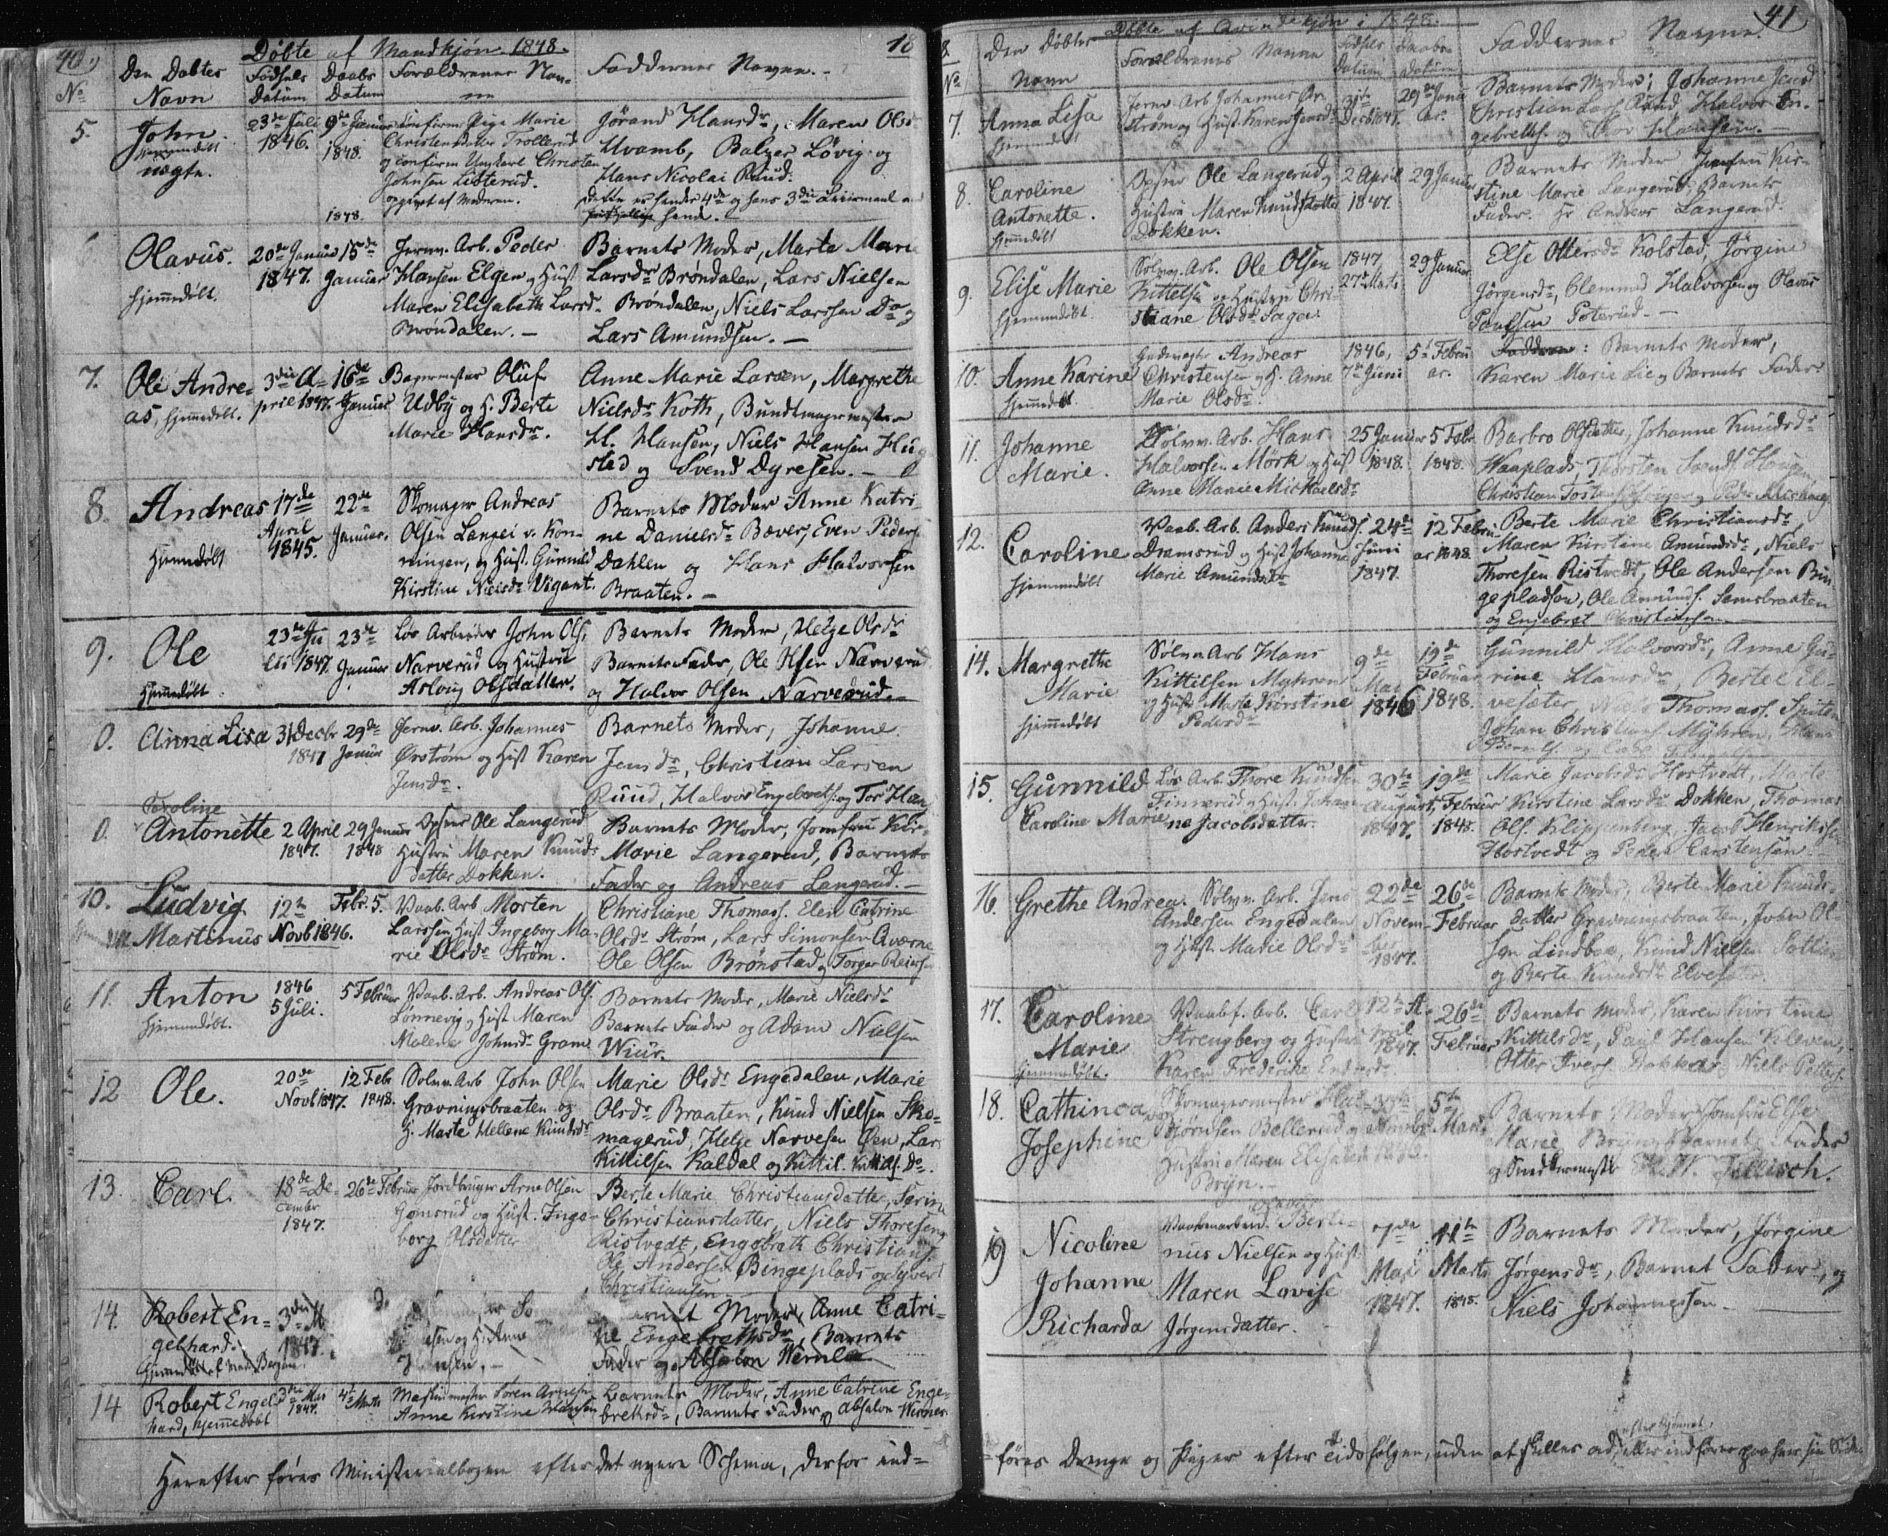 40.
Døbte af Mandkjøn 1848.
18
No
Den Døbtes
Navn
Fødsels
Datum
Daabs
Datum
Forældrenes Nav-
ne
Faddernes Navne.
5.
John
hjemmedøbt
uægte.
23de Juli
1846.
9de Januar
1848.
Pige Marie
Trollerud
og Ungkarl Christen
Johnsen Listerud.
opgivet af Moderen.
1848.
Jørand Hansdr, Maren Olsdr
Hvamb, Balzer Løvig og
Hans Nicolai Ruud.
Dette er hendes 4de og hans 3die Leiermaal
Olavus.
hjemmedøbt.
20de Januar
1847.
15de
Januar
Jernv. Arb. Peder
Hansen Elgen og Hust
Maren Elisabeth Larsd.
Brøndalen.
Barnets Moder, Marte Marie
Larsdr Brøndalen, Lars Nielsen
Brøndalen, Niels Larssen Do og
Lars Amundsen.
7.
Ole Andre-
as, hjemmedøbt.
3die A-
pril 1847.
16de
Januar
Bagermester Oluf
Udby og H. Berte
Marie Hansdr.
Anne Marie Larsen, Margrethe
Nielsdr Koth, Bundtmagermester
H. Hansen, Niels Hansen
og Svend Dyresen.
8.
Andreas
Hjemmedøbt
17de
April
1845.
22de
Januar.
Skomager Andreas
Olsen Langei v. Kon-
ningen, og Hust. Gunnild
Kirstine Nielsdr Vigant.
Barnets Moder Anne Katri-
ne Danielsdr Bæver, Even Peders.
Dahlen og Hans Halvorsen
Braaten.
9.
Ole
Hjemmedøbt.
23de Ju-
lii 1847.
23de
Januar
Løs Arbeider John Ols.
Narverud og Hustrue
Aslaug Olsdatter.
Barnets Moder, Helge Olsdr
Barnets Fader, Ole Olsen Narverud
og Halvor Olsen Narverud.
0.
Anna Lisa
31 Decbr
1847
29de
Januar
Jernv. Arb. Johannes
Ørstrøm og Hust Karen
Jensdr.
Barnets Moder, Johanne
Jensdr, Christian Larsen
Ruud, Halvor Engebrets. og Tor Hans
0.
Caroline
Antonette
2 April
1847.
29 Januar
1848
Ole Langerud
Hustru Maren Knuds-
datter Dokken.
Barnets Moder, Jomfru Kir-
Marie Langerud, Barnets
Fader og Andreas Langerud.
10.
Ludvig
Martinus
12te
Novb 1846.
Febr 5.
Vaab. Arb Morten
Larssen, Hust Ingeborg Ma-
rie Olsdr Strøm.
Christiane Thomass. Elen Catrine
Olsdr Strøm, Lars Simonsen Aværne
Ole Olsen Brønstad og Torger Reiers.
11.
Anton
hjemmedøbt.
1846
5 Juli.
5 Februar
Vaab. Arb. Andreas Ols.
Lønnevig og Hust Maren
Malene Johnsdr Gram
Barnets Moder, Marie Nielsdr
Barnets Fader og Adam Nielsen
Wiur.
12
Ole.
20de
Novb 1847.
12 Febr
1848.
Sølvv. Arb John Olsen
Gravningsbraaten og
H. Marte Hellene Knudsdr
Marie Olsdr Engedalen, Marie
Olsdr Braaten, Knud Nielsen Sko-
magerud, Helge Narvesen Øen, Lars
Kittilsen Kaldal og Kittil Kittils. Do.
13.
Carl.
18de De-
cember
1847.
26de Februar
Jordbruger Arne Olsen
Gomsrud og Hust. Inge-
borg Olsdatter
Berte Marie Christiansdatter, Sørine
Christiansdatter, Niels Thoresen
Ristvedt, Engebreth Christians.
Ole Andersen Bingeplads og Syvert
Christiansen
14.
Robert En-
gelhard.
3die M
1847.
So
og H. Anne
Barnets Moder, Anne Catri-
ne Engebrethsdr, Barnets
Fader og Absalon Werner
14
Robert Engel-
hard, hjemmedøbt
3die Mai
1847.
4de Marts
Søren Arnesen
Anne Kirstine Hansen
Barnets Moder, Anne Catrine Enge-
bretsdr, Barnets Fader og Absalon Werner.
Herefter føres Ministerialbogen efter det nyere Schema, derfor ind-
8
41
Døbte af Qvindekjøn i 1848.
No
Den Døbtes
Navn
Forældrenes Navne
Fødsels
Datum
Daabs
Datum
Faddernes Navne
7.
Anna Lisa
hjemmedøbt
Jernv. Arb Johannes Ør-
strøm og Hust. Karen Jensdr
31te
Decb 1847.
29de Janu-
ar.
Barnets Moder, Johanne Jensd
Christian Lars. Ruud, Halvor En-
gebrets. og Thor Hansen.
8.
Caroline
Antonette.
hjemmedøbt
Ole Langerud og
Hustru Maren Knudsdatter
Dokken.
2 April
1847.
29 Januar
Barnets Moder Jomfru Kir-
stine Marie Langerud, Barnets
Fader. Hr Andreas Langerud.
9.
Elise Marie
hjemmedøbt.
Sølvv. Arb. Ole Olsen
Kittelsen og Hustrue Chri-
stiane Olsdr Sager
1847
27de Marts
29 Januar
Else Ottersdr Kolstad, Jørgine
Jørgensdr, Clemmed Halvorsen og Olavus
Poulsen Poterud.
10.
Anne Karine
hjemmedøbt
Andreas
Christensen og H. Anne
Marie Olsdr.
1846,
7de Juni
5te Febru-
ar.
Faddere: Barnets Moder,
Karen Marie Lie og Barnets Fader
11.
Johanne
Marie.
Sølvv. Arb. Hans
Halvorsen Mørk og Hust
Anne Marie Mickaelsdr
25 Januar
1848.
5 Febr.
1848.
Barbro Olsdatter, Johanne Knudsdr
Haugplads, Thorsten Svends. Haugen
12.
Caroline
hjemmedøbt
Vaab. Arb. Anders Knuds.
Dramsrud og Hust Johanne
Marie Amundsdr
24de
Juni
1847.
12 Febru-
ar 1848.
Berte Marie Christiansdr,
Maren Kirstine Amundsdr, Niels
Thoresen Ristvedt, Ole Andersen Bin-
gepladsen, Ole Amunds. Samsbraaten
og Engebret Christiansen
14.
Margrethe
Marie
hjemmedøbt
Sølvv. Arb Hans
Kittilsen Myhren
og Hust Marte Kirstine
Pedersdr
9de
Mai
1846
19de
Februar
1848.
Gunnild Halvorsdr, Anne Gu-
rine Hansdr, Bertel El-
vesæter, Niels Thomass. Spiten
Johan Christians. Myhren, Hans
15.
Gunnild
Caroline Marie
Løs Arb. Thore Knudsen
Finnerud og Hust. Johan-
ne Jacobsdatter.
30te
August,
1847.
19de
Februar
1848.
Marie Jacobsdr Hostvedt, Marte
Kirstine Larsdr Dokken, Thomas
Ols. Klippenberg, Jacob Henriksen
Hostvedt og Peder Carstensen.
16.
Grethe Andrea.
Sølvv. Arb. Jens
Andersen Engedalen
og Hust. Marie Olsdr
22de
Novem-
ber
1847.
26de
Februar
Barnets Moder, Berte Marie Knuds-
datter Gravningsbraaten, John Ol-
sen Lindboe, Knud Nielsen
og Berte Knudsdr Elvesæter.
17.
Caroline
Marie
hjemmedøbt.
Vaabf. Arb. Carl
Strengberg og Hustru
Karen Frederike
12te A-
pril
1847.
26de
Februar
Barnets Moder, Karen Kirstine
Kittelsdr, Paul Hansen Kleven,
Otter Ivers. Bakker, Niels Petters.
18.
Cathinca
Josephine
Skomagermester
Bjørnsen Bellerud og
Hustrue Maren Elisabeth
Bryn.
5te
Marts
Barnets Moder, Jomfru Else
Marie Bryn, Barnets Fader
og
19
Nicoline
Johanne
Richarda
Berti-
nus Nielsen og Hust.
Maren Lovise
Jørgensdatter.
7de
Mai
1847.
11te
Marts
1848.
Barnets Moder, Jørgine
Jørgensdr, Barnet Fader, og
Niels Johannesen.
føres Drenge og Piger efter Tidsfølgen, uden at skilles ad, efter Kjønnet, eller indføres paa hver sin Side.